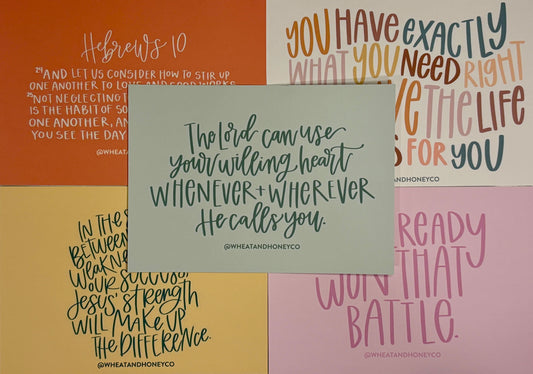 Hebrews 10
24 AND LET US CONSIDER HOW TO STIR UP
ONE ANOTHER TO LOVE AND GOOD WORKS,
25 NOT NEGLECTING T
IS THE HABIT OF SO
ONE ANOTHER, AN
YOU SEE THE DAY
@WHEATANDHONEYCO
YOU HAVE EXACTLY
WHAT YOU NEED RIGHT
THE LIFE
FOR YOU
The Lord can use
your willing heart
WHENEVER + WHEREVER
He calls you.
@WHEATANDHONEYCO
IN THE
BETWEEN
WEAKNE
OUR SUCCESS,
JESUS' STRENGTH
WILL MAKE UP
THE DIFFERENCE.
@WHEATANDHONEYCO
READY
WON THAT
BATTLE.
@WHEATANDHONEYCO